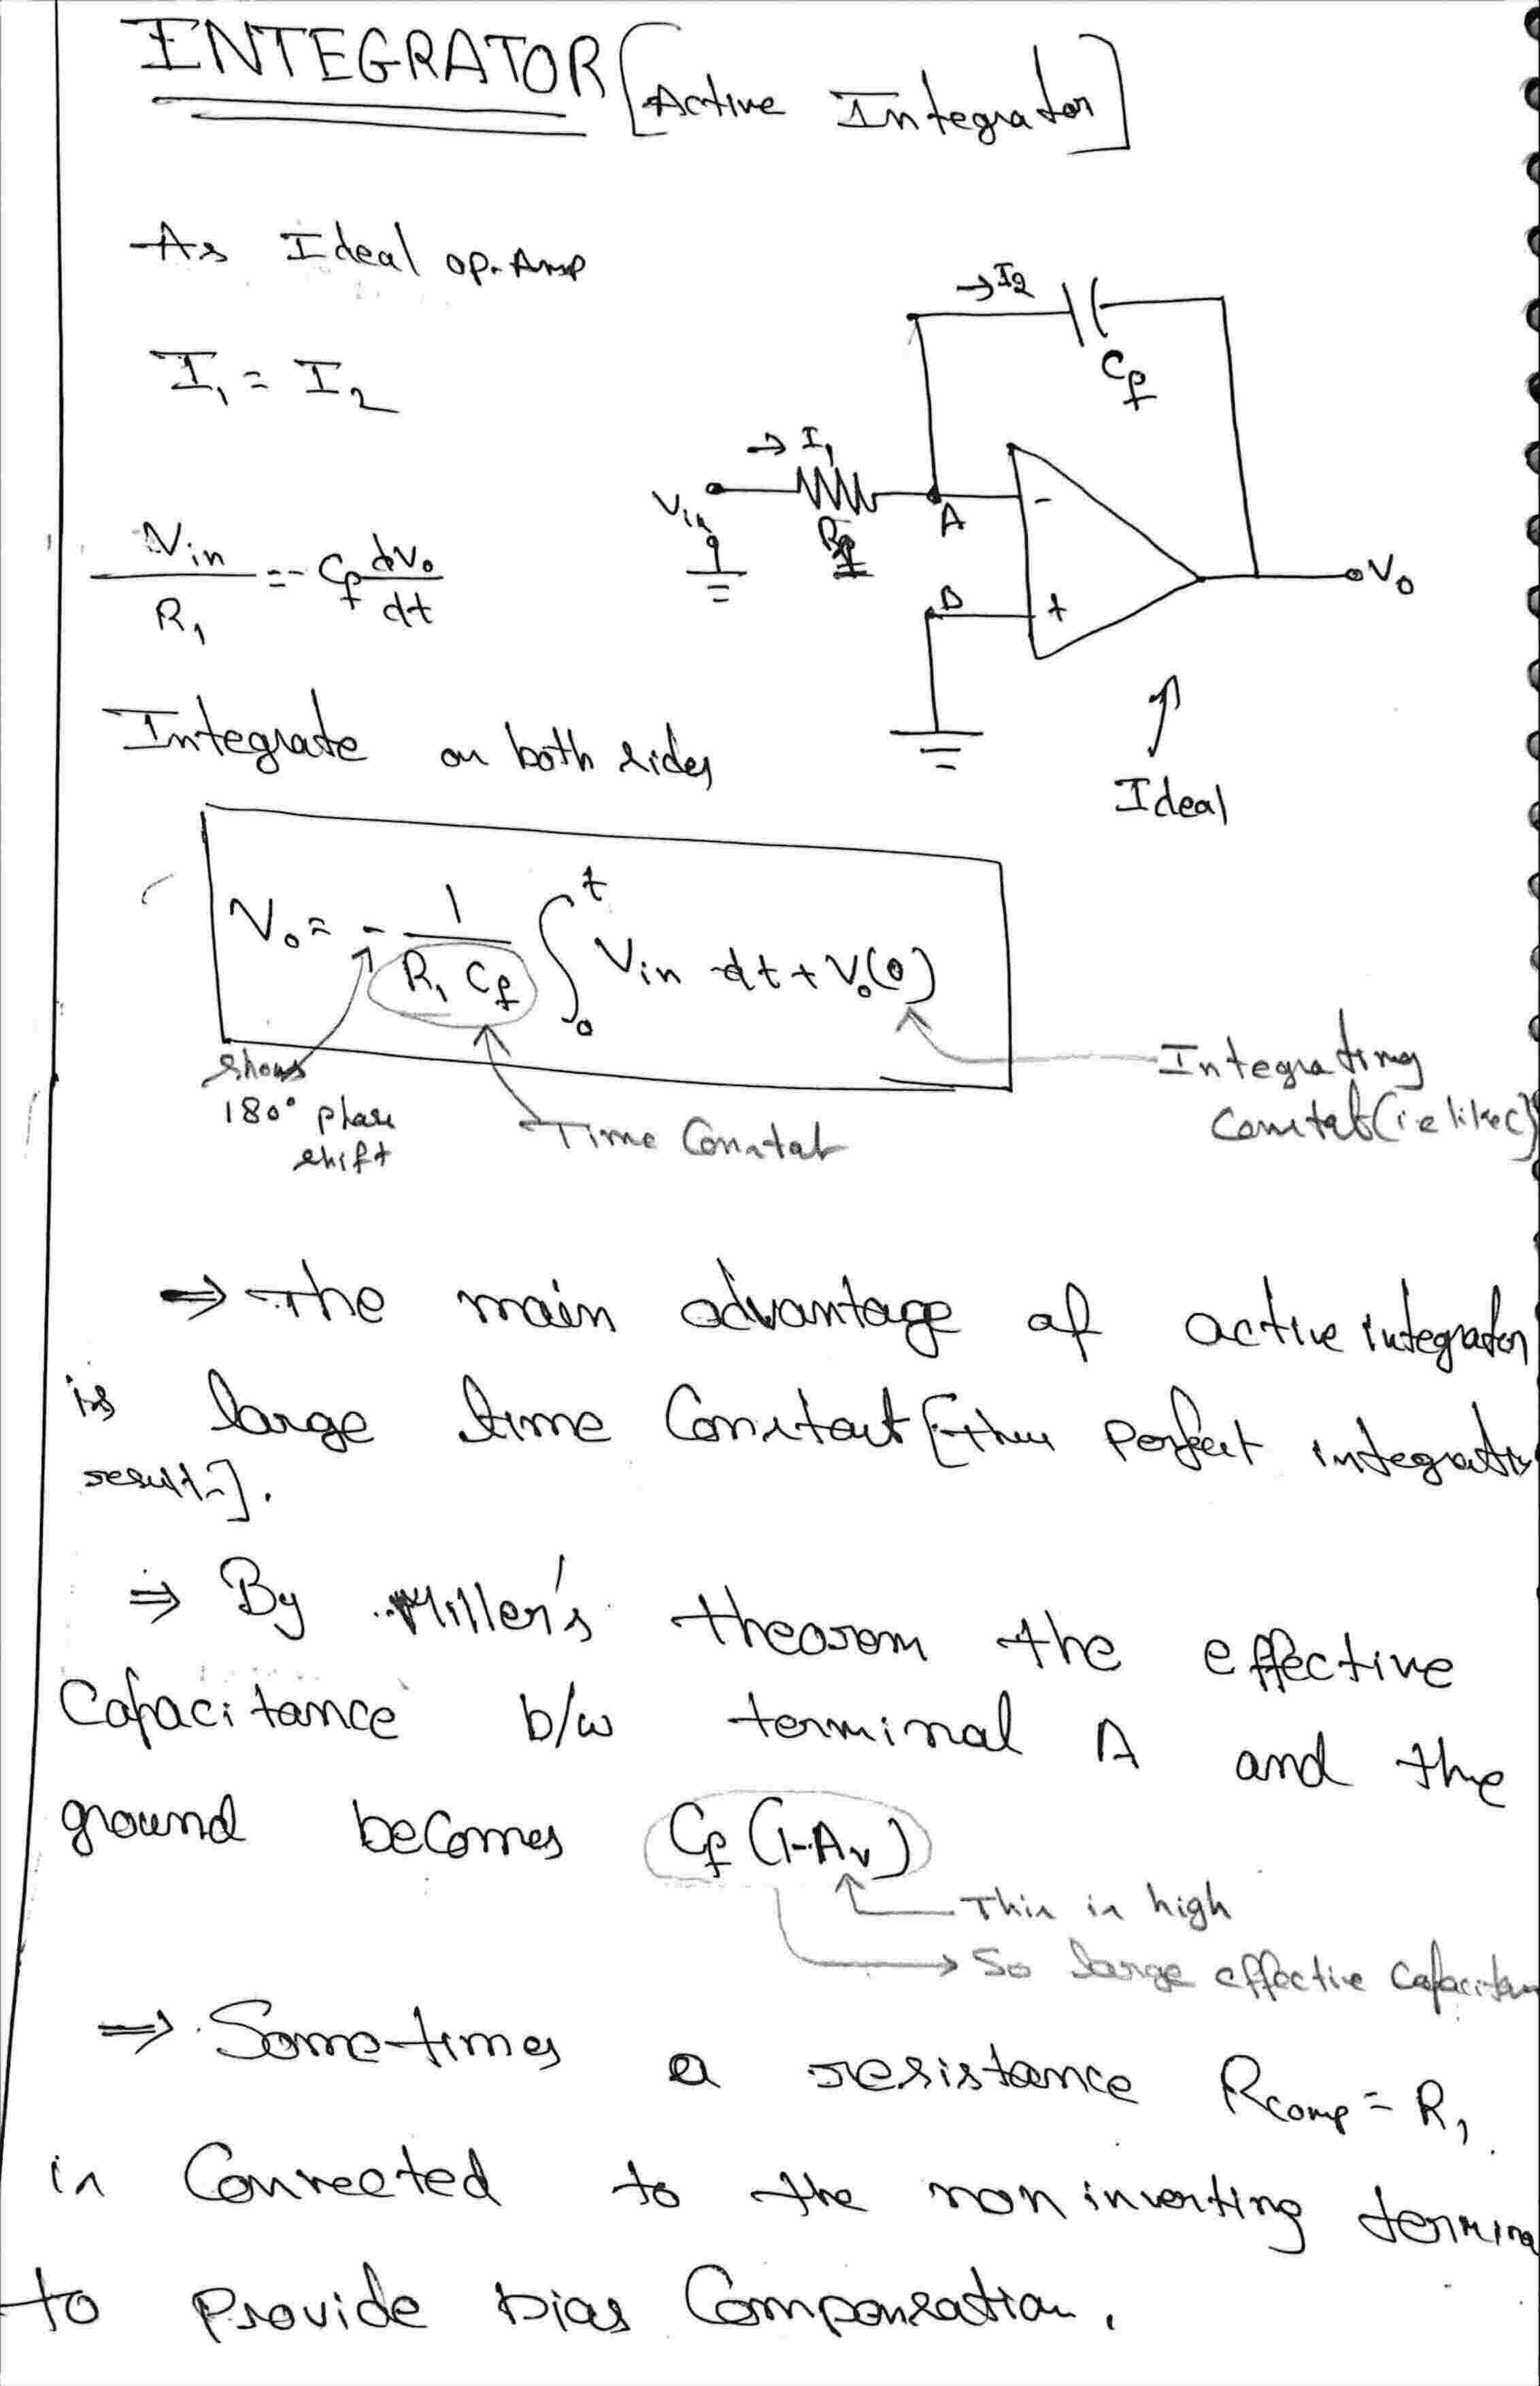 INTEGRATOR [Active Integrator]
As Ideal op-Amp
I₁ = I₂
Vin / R₁ = - Cf dVo / dt
→ I2
Cf
→ I₁
Vin
R1
A
-
B
+
Vo
Ideal
Integrate on both sides
Vo = - 1 / R₁ Cf ∫₀ᵗ Vin dt + Vo(0)
shows
180° phase
shift
Time Constat
Integrating
Constat (i.e like C)
⇒ The main advantage of active integrator
is large time Constant [thus perfect integration
results].
⇒ By Miller's theorem the effective
Capacitance b/w terminal A and the
ground becomes Cf (1-Av)
This is high
→ So large effective Capacitan
⇒ Some-times a resistance Rcomp = R₁
is Connected to the non inverting termina
to Provide bias Compensation.